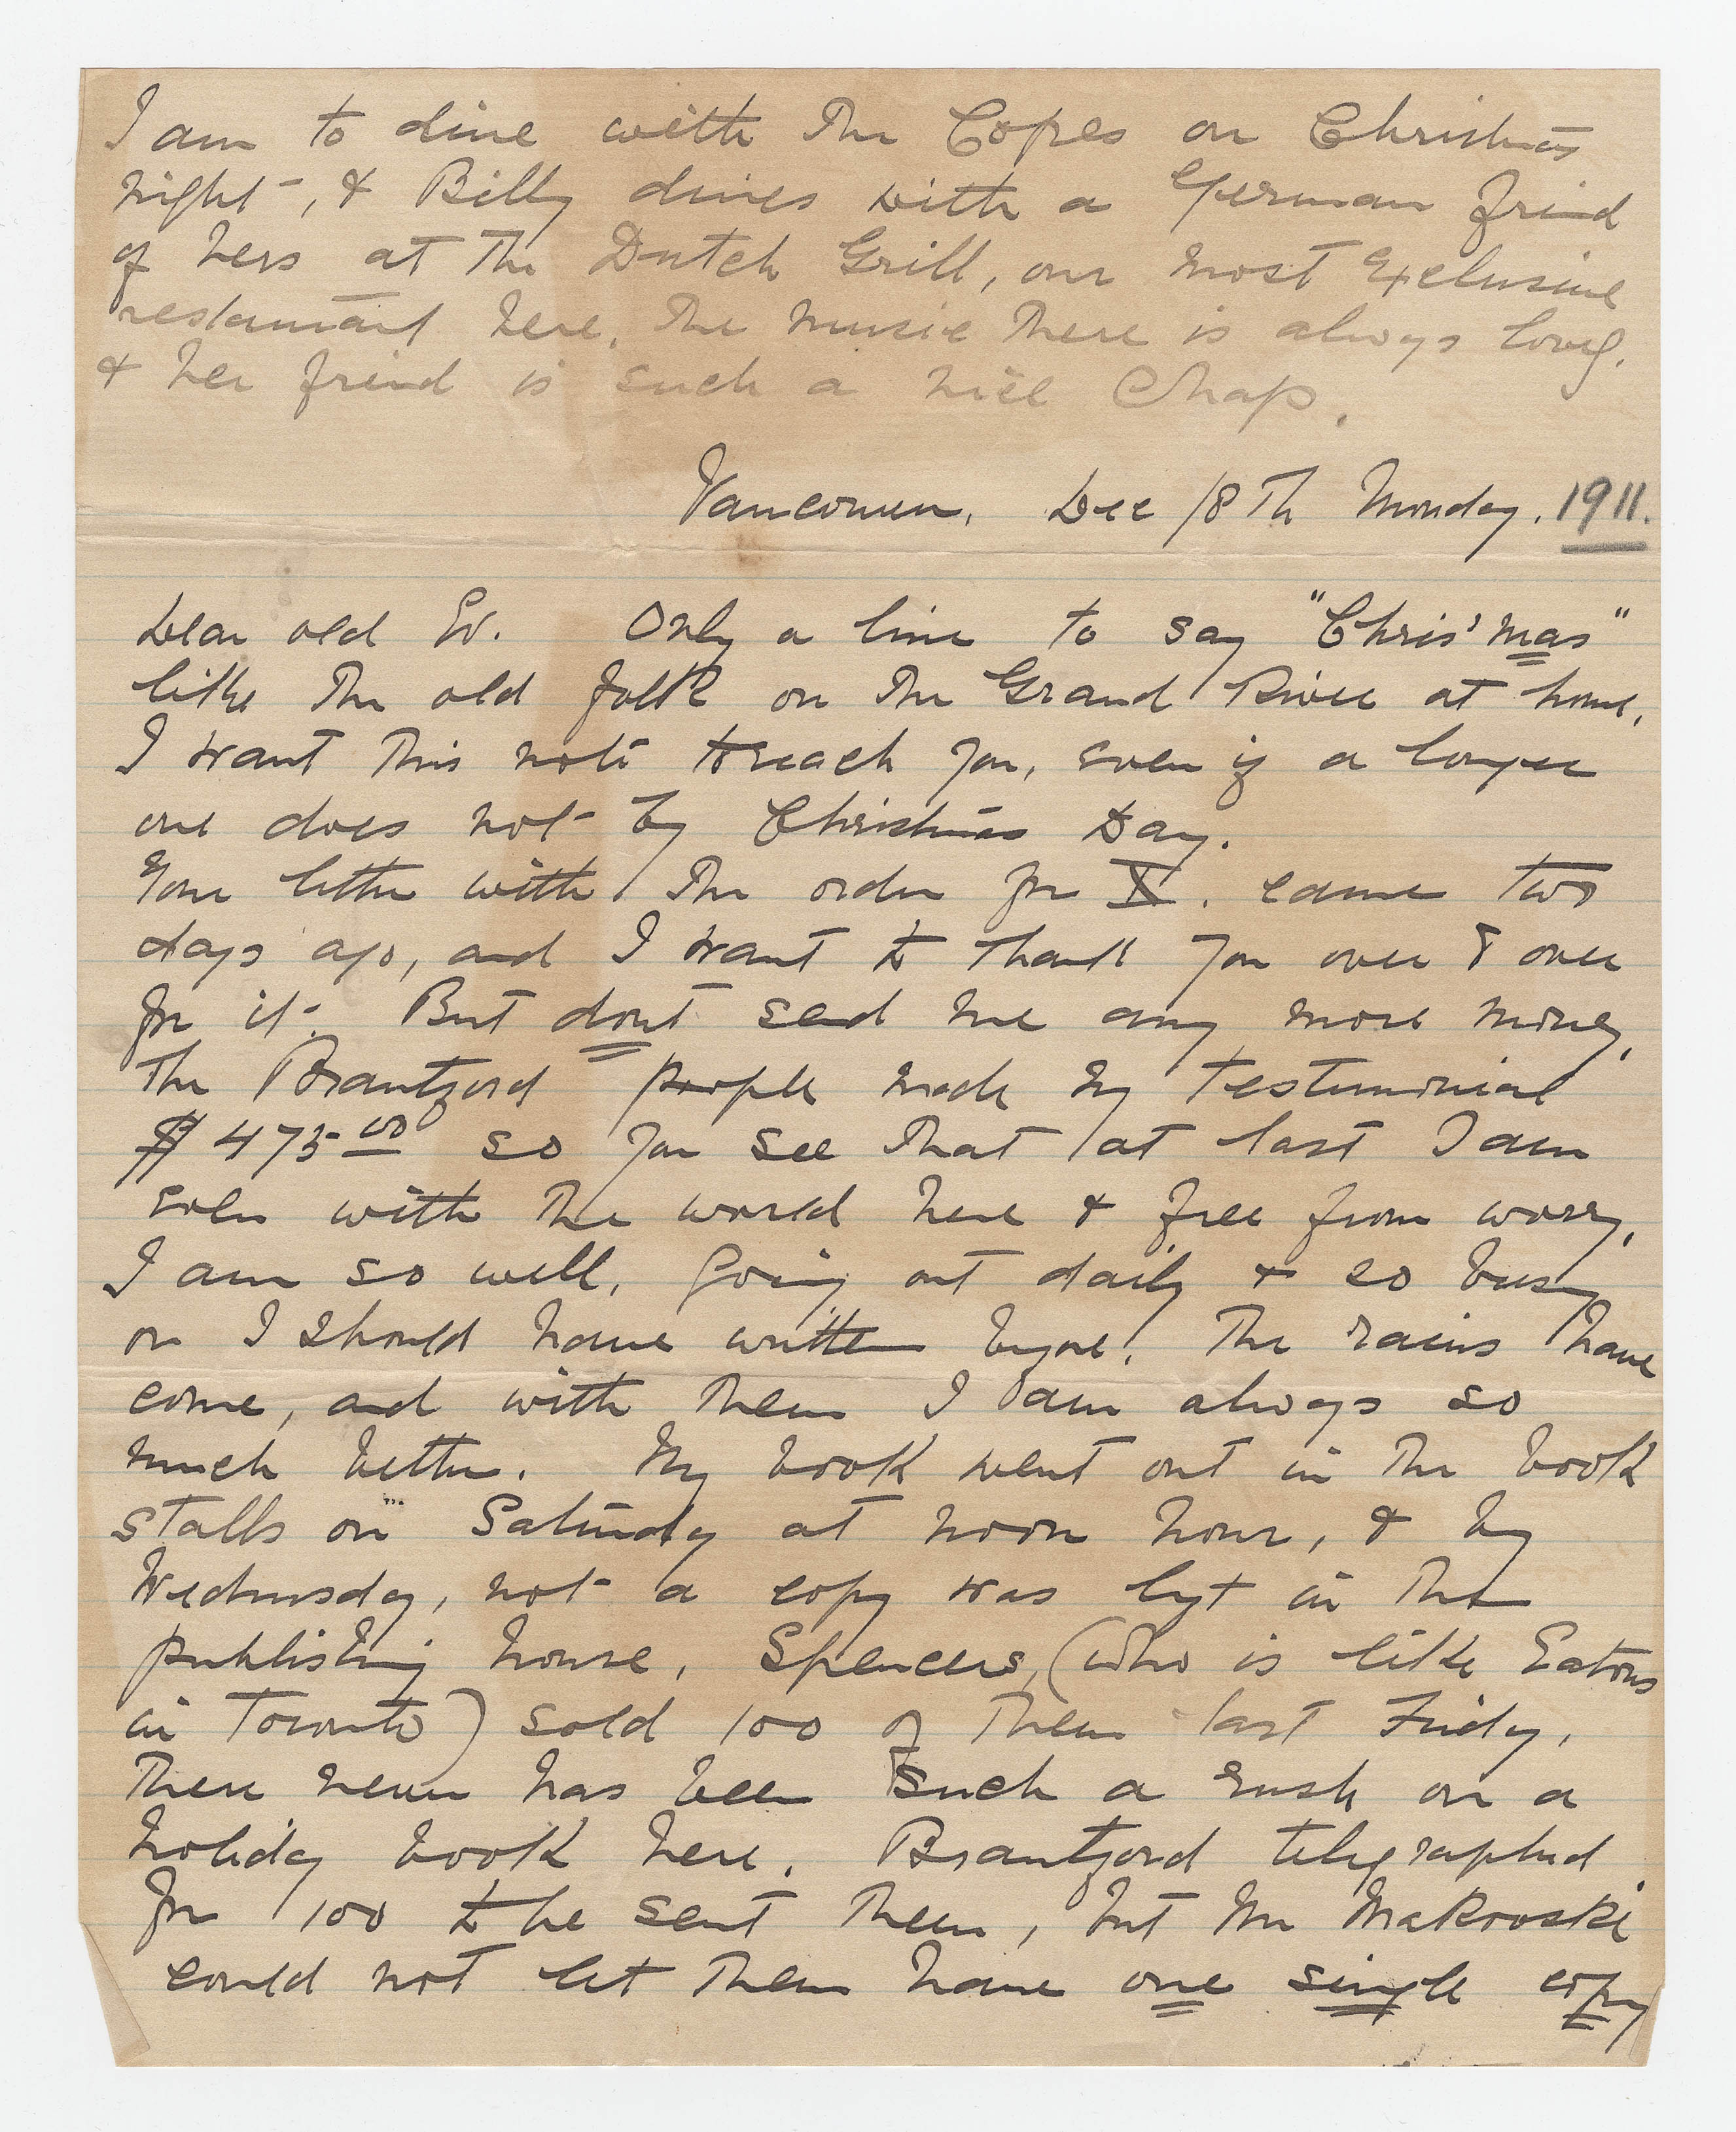 I am to dine with the Copes on Christmas
night, & Billy dines with a German friend
of hers at the Dutch Grill, our most exclusive
restaurant here. The music there is always lovely.
& her friend is such a nice chap.
Vancouver. Dec 18th Monday. 1911.
Dear old Ev. Only a line to say "Chris'mas"
like the old folk on the Grand River at home.
I want this note to reach you, even if a longer
one does not by Christmas Day.
Your letter with the order for X. came two
days ago, and I want to thank you over & over
for it. But dont send me any more money,
The Brantford people made my testimonial
$475.00 so you see that at last I am
even with the world here & free from worry.
I am so well, going out daily & so busy
or I should have written before. The rains have
come, and with them I am always so
much better. My book went out in the book
stalls on Saturday at noon hour, & by
Wednesday, not a copy was left in the
publishing house. Spencers, (who is like Eatons
in Toronto) sold 100 of them last Friday.
There never has been such a rush on a
holiday book here. Brantford telegraphed
for 100 to be sent them, but Mr Makovski
could not let them have one single copy